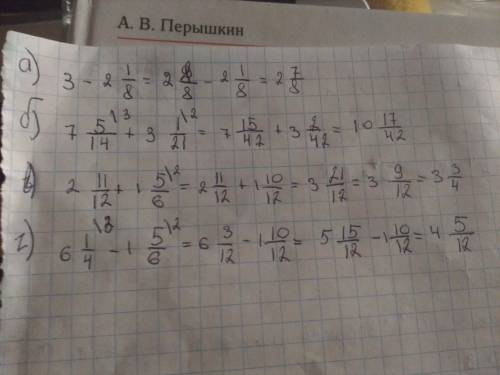 А. В. Перышкин
а) 3 - 2 1/8 = 2 8/8 - 2 1/8 = 2 7/8
б) 7 5/14 \3 + 3 1/21 \2 = 7 15/42 + 3 2/42 = 10 17/42
в) 2 11/12 + 1 5/6 \2 = 2 11/12 + 1 10/12 = 3 21/12 = 3 9/12 = 3 3/4
г) 6 1/4 \3 - 1 5/6 \2 = 6 3/12 - 1 10/12 = 5 15/12 - 1 10/12 = 4 5/12